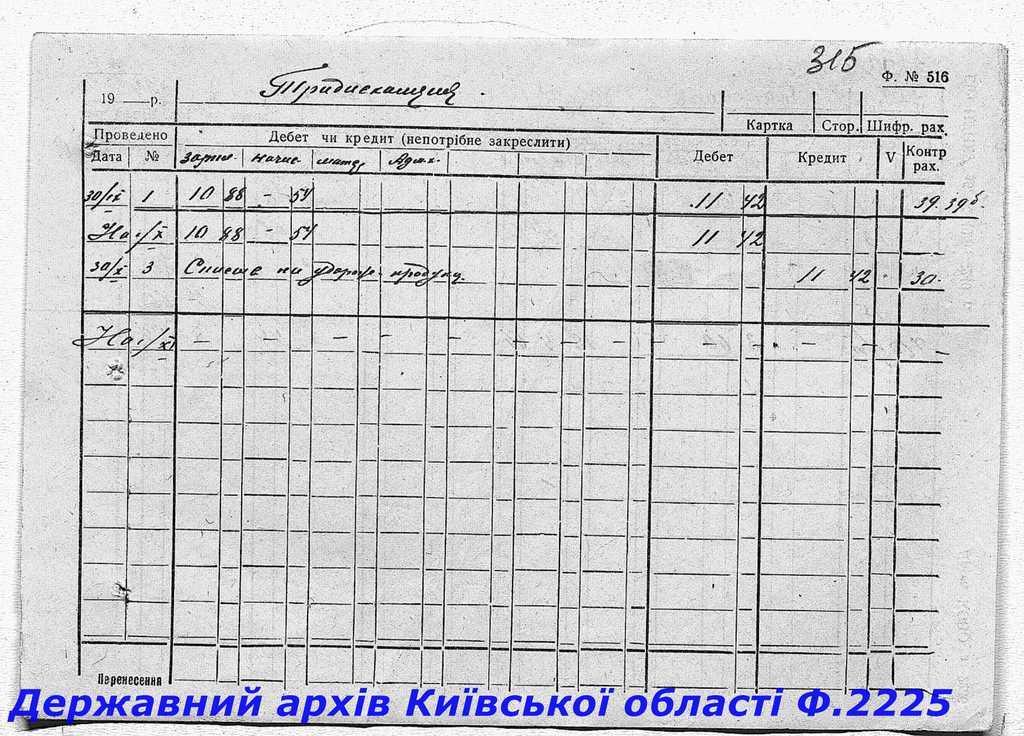 315
Ф. № 516
19 р.
Картка Стор. Шифр. рах.
Проведено Дебет чи кредит (непотрібне закреслити) Дебет Кредит V Контр рах.
Дата № зарпл. начис. матер Адм.х.
30/IX 1 10 88 - 54 11 42 39.39б
На 1/X 10 88 - 54 11 42
30/X 3 на продукц. 11 42 30
На 1/XI - - - - - - - - - - - - - -
Перенесення
Державний архів Київської області Ф.2225